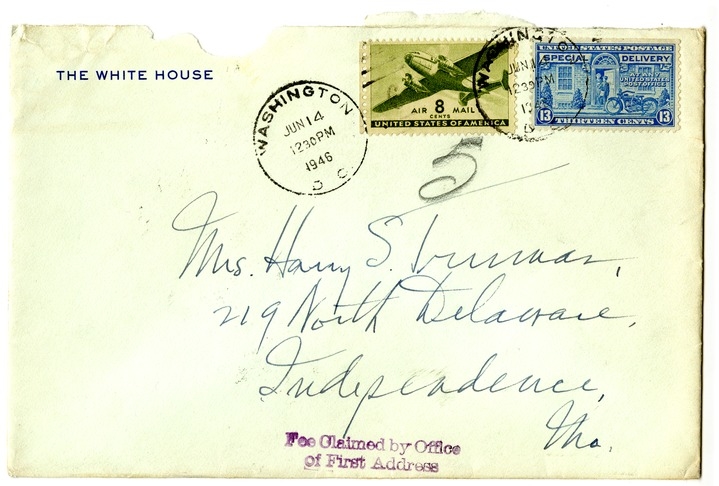 THE WHITE HOUSE
WASHINGTON
JUN 14
1230 PM
1946
D C
AIR 8 MAIL
CENTS
UNITED STATES OF AMERICA
WASHINGTON
JUN 14
1230 PM
UNITED STATES POSTAGE
SPECIAL DELIVERY
AT ANY
UNITED STATES
POST OFFICE
13 13
THIRTEEN CENTS
5
Mrs. Harry S. Truman,
219 North Delaware,
Independence,
Mo.
Fee Claimed by Office
of First Address